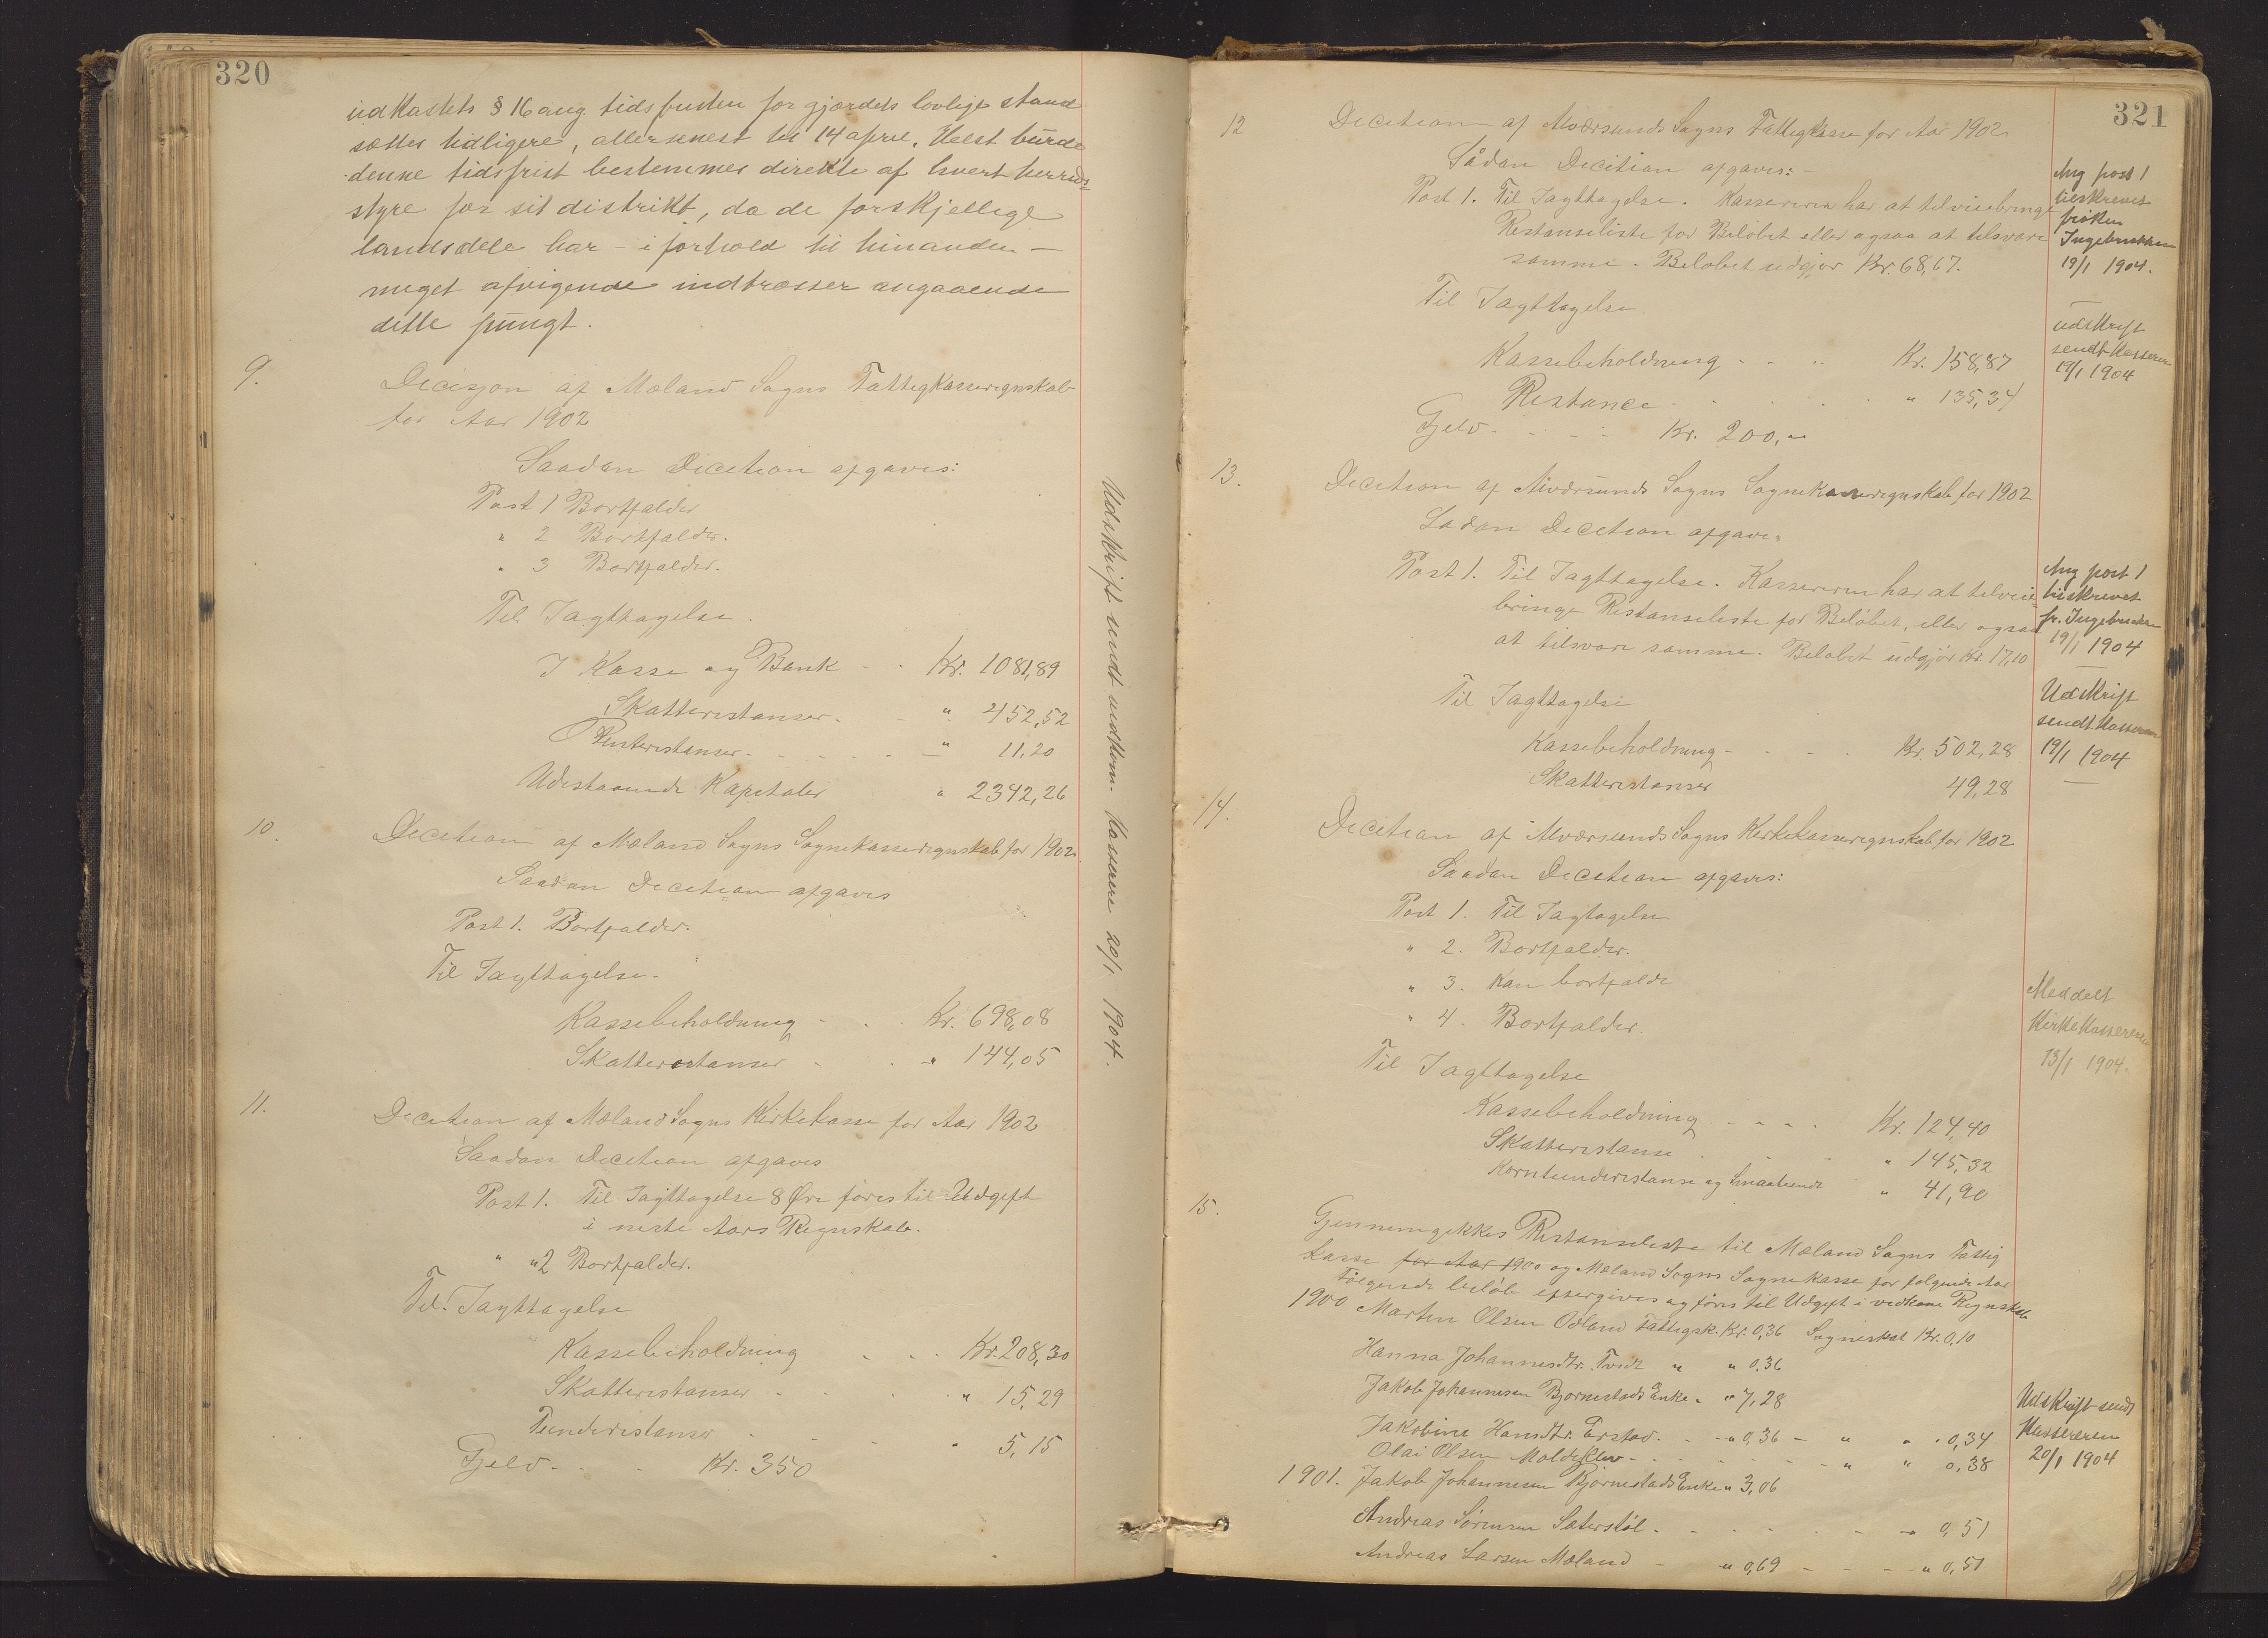 320
udkastets § 16 ang. tidsfristen for gjærdets lovlige stand
sættes tidligere, allersenest til 14 april. Helst burde
denne tidsfrist bestemmes direkte af hvert herreds-
styre for sit distrikt, da de forskjellige
landsdele har - i forhold til hinanden -
meget afvigende indtræsser angaaende
dette pungt.
9.
Decisjon af Mæland Sogns Fattigkasseregnskab
for Aar 1902
Saadan Decition afgaves:
Post 1 Bortfalder
" 2 Bortfalder.
" 3 Bortfalder.
Til Iagttagelse.
I Kasse og Bank - - Kr. 1081,89
Skatterestanser - - " 452,52
Renterestanser - - - - " 11,20
Udestaaende Kapitaler " 2342,26
10.
Decition af Mæland Sogns Sognekasseregnskab for 1902
Saadan Decition afgaves
Post 1. Bortfalder.
Til Iagttagelse.
Kassebeholdning - . . Kr. 698,08
Skatterestanser - . " 144,05
11.
Decition af Mæland Sogns Kirkekasse for Aar 1902
Saadan Decition afgaves
Post 1. Til Iagttagelse 8 Øre føres til Udgift
i neste Aars Regnskab.
" "2 Bortfalder.
Til Iagttagelse
Kassebeholdning - - - Kr. 208,30
Skatterestanser - - - " 15,29
Tienderestanser - - - " 5,15
Gjeld - - - Kr. 350
Udskrift sendt vedkom. Kasserere 20/1 1904.
321
12
Decition af Alversunds Sogns Fattigkasse for Aar 1902
Sådan Decition afgaves: -
Post 1. Til Iagttagelse. Kassereren har at tilveiebringe
Restanseliste for Beløbet eller ogsaa at tilsvare
samme. Beløbet udgjør Kr. 68,67.
Til Iagttagelse
Kassebeholdning - - - Kr. 158,87
Restance - - - - " 135,34
Gjeld - - - - Kr. 200,-
Ang post 1
tilskrevet
frøken
Ingebretsen
19/1 1904.
udskrift
sendt Kasseren
19/1 1904
13.
Decition af Alversunds Sogns Sognekasseregnskab for 1902
Sadan Decition afgaves
Post 1. Til Iagttagelse. Kassereren har at tilveie-
bringe Restanseliste for Beløbet, eller ogsaa
at tilsvare samme. Beløbet udgjør Kr. 17,10
Til Iagttagelse
Kassebeholdning - - - - Kr. 502,28
Skatterestanser 49,28
Ang post 1
tilskrevet
fr. Ingebretsen
19/1 1904
Udskrift
sendt Kasseren
19/1 1904
14.
Decition af Alversunds Sogns Kirkekasseregnskab for 1902
Saadan Decition afgaves:
Post 1. Til Iagtagelse
" 2. Bortfalder.
" 3. Kan bortfalde
" 4. Bortfalder.
Til Iagttagelse
Kassebeholdning - - - - Kr. 124,40
Skatterestanse - - " 145,32
Korntienderestanse og Smaatiende " 41,90
Meddelt
Kirkekassereren
13/1 1904.
15.
Gjennemgikkes Restanseliste til Mæland Sogns Fattig
kasse for Aar 1900 og Mæland Sogns Sognekasse for følgende Aar
Følgende beløb eftergives og føres til Udgift i vedkom Regnskab
1900 Marten Olsen Odland Fattigsk. Kr. 0,36 Sogneskat Kr. 0,10
Hanna Johannesdtr. Tveit " " 0,36
Jakob Johannesen Bjørnestads Enke " " 7,28
Jakobine Hansdtr. Erstad - - " 0,36 - " " " 0,34
Olai Olsen Moldeklev - - - - - " " 0,38
1901. Jakob Johannesen Bjørnestads Enke " 3,06
Andreas Sørensen Saterstøl - - - - - " 0,51
Andreas Larsen Mæland - " 0,69 - - - " 0,51
Udskrift sendt
Kassereren
20/1 1904